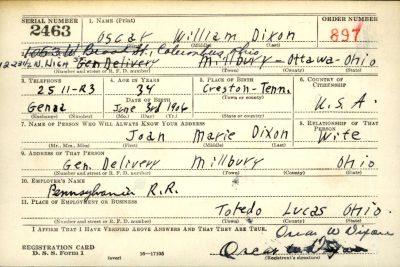 SERIAL NUMBER 1. NAME (Print) ORDER NUMBER
2463 Oscar William Dixon 897
(First) (Middle) (Last)
1063 W Broad St. Columbus, Ohio
N. High Gen Delivery Millbury - Ottawa - Ohio
(Number and street or R. F. D. number) (Town) (County) (State)
3. TELEPHONE 4. AGE IN YEARS 5. PLACE OF BIRTH 6. COUNTRY OF CITIZENSHIP
2511-R3 34 Creston - Tenn.
DATE OF BIRTH (Town or county)
Genoa June 3rd 1906 U.S.A.
(Exchange) (Number) (Mo.) (Day) (Yr.) (State or country)
7. NAME OF PERSON WHO WILL ALWAYS KNOW YOUR ADDRESS 8. RELATIONSHIP OF THAT PERSON
Joan Marie Dixon Wife
(Mr., Mrs., Miss) (First) (Middle) (Last)
9. ADDRESS OF THAT PERSON
Gen. Delivery Millbury Ohio
(Number and street or R. F. D. number) (Town) (County) (State)
10. EMPLOYER'S NAME
Pennsylvania R.R.
11. PLACE OF EMPLOYMENT OR BUSINESS
Toledo Lucas Ohio.
(Number and street or R. F. D. number) (Town) (County) (State)
I AFFIRM THAT I HAVE VERIFIED ABOVE ANSWERS AND THAT THEY ARE TRUE. Oscar W Dixon
REGISTRATION CARD Oscar W Dixon
D. S. S. Form 1 (over) 16-17105